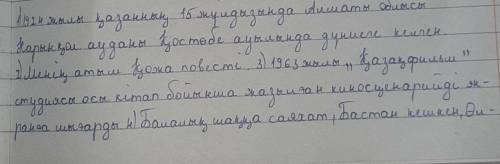 1) 1924 жылы қазанның 15 жұлдызында Алматы облысы
Нарынқол ауданы Қостөбе ауылында дүниеге келген.
2) Менің атым Қожа повесті 3) 1963 жылы „Қазақфильм"
студиясы осы кітап бойынша жазылған киносценарийді эк-
ранға шығарды 4) Балалық шаққа саяхат, Бастан кешкен, Әли-